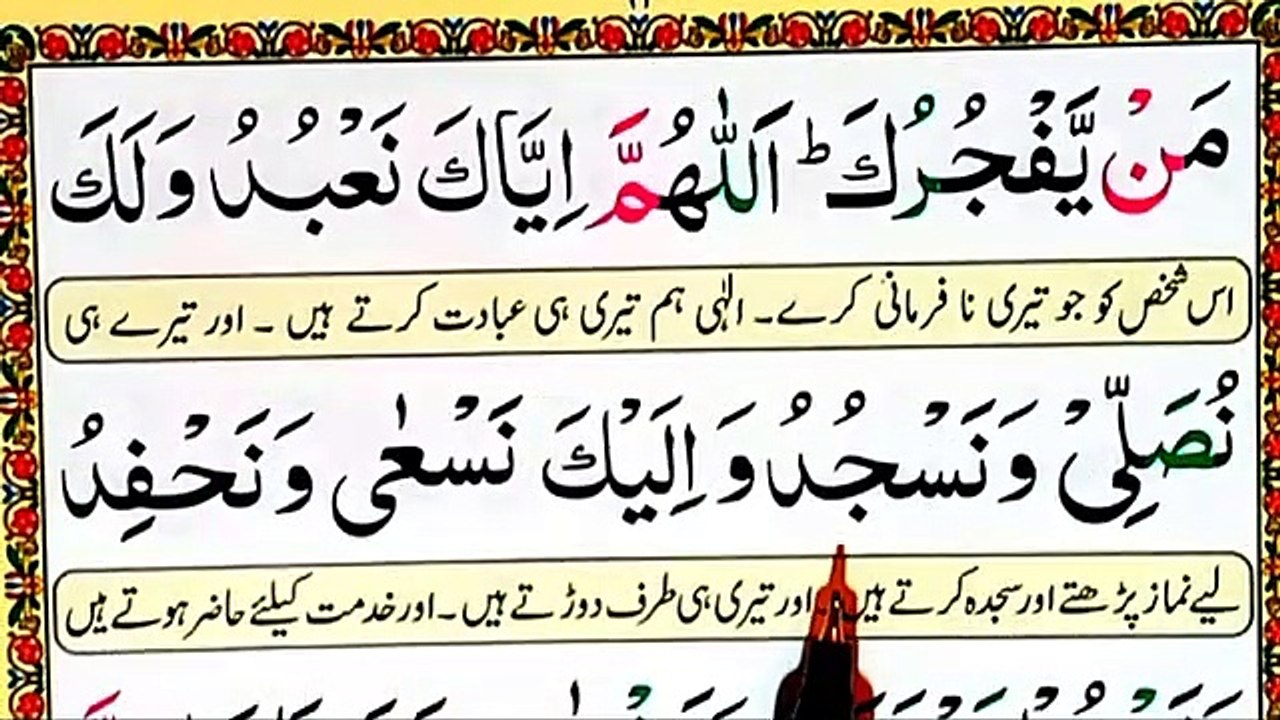 مَنْ يَّفْجُرُكَ ؕ اَللّٰهُمَّ اِيَّاكَ نَعْبُدُ وَلَكَ
اس شخص کو جو تیری نا فرمانی کرے۔ الٰہی ہم تیری ہی عبادت کرتے ہیں ۔ اور تیرے ہی
نُصَلِّيْ وَنَسْجُدُ وَ اِلَيْكَ نَسْعٰى وَنَحْفِدُ
لیے نماز پڑھتے اور سجدہ کرتے ہیں اور تیری ہی طرف دوڑتے ہیں۔ اور خدمت کیلئے حاضر ہوتے ہیں